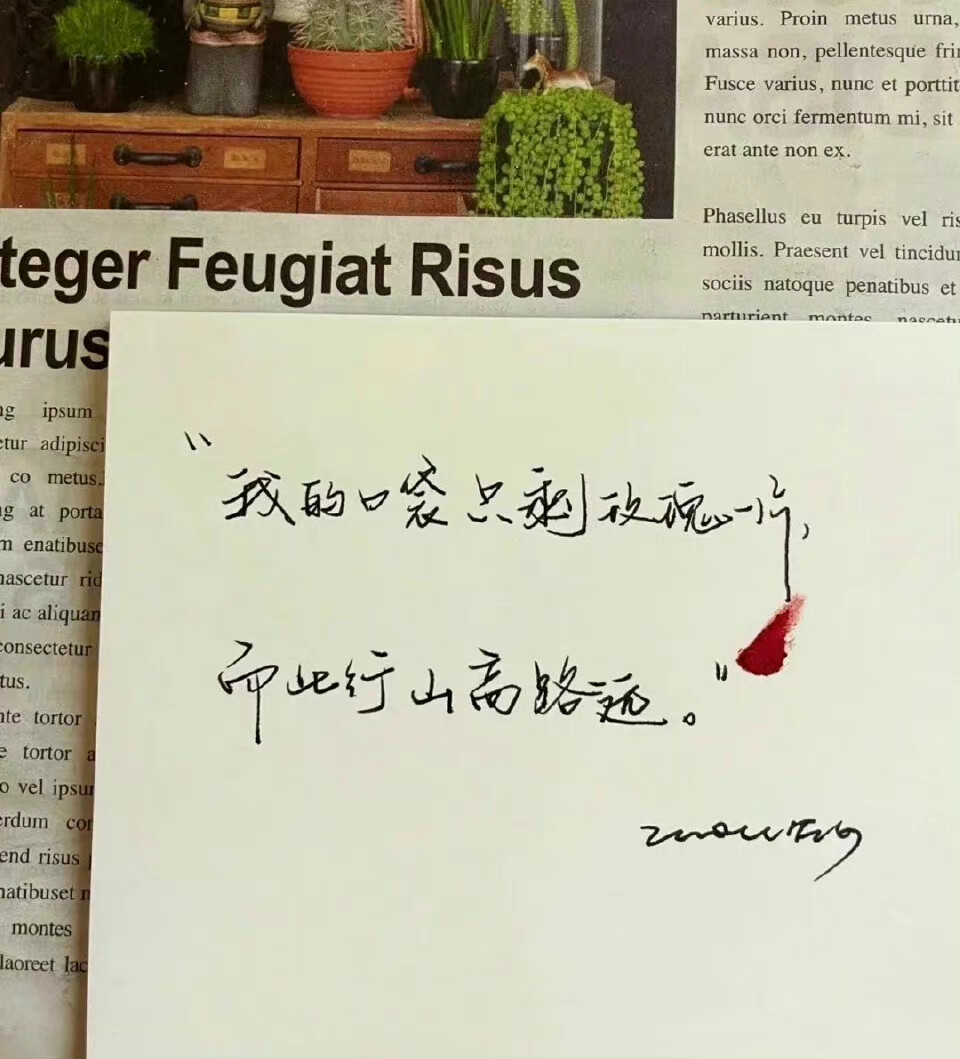 varius. Proin metus urna,
massa non, pellentesque
Fusce varius, nunc et
nunc orci fermentum mi, sit
erat ante non ex.
Phasellus eu turpis vel
mollis. Praesent vel
sociis natoque penatibus et
parturient montes
teger Feugiat Risus
urus
ipsum
adipisci
co metus.
at porta
enatibus
ac aliquan
consectetur
tus.
te tortor
tortor a
vel ipsum
end risus
montes
laoreet lac
“我的口袋只剩玫瑰一片，
而此行山高路远。”